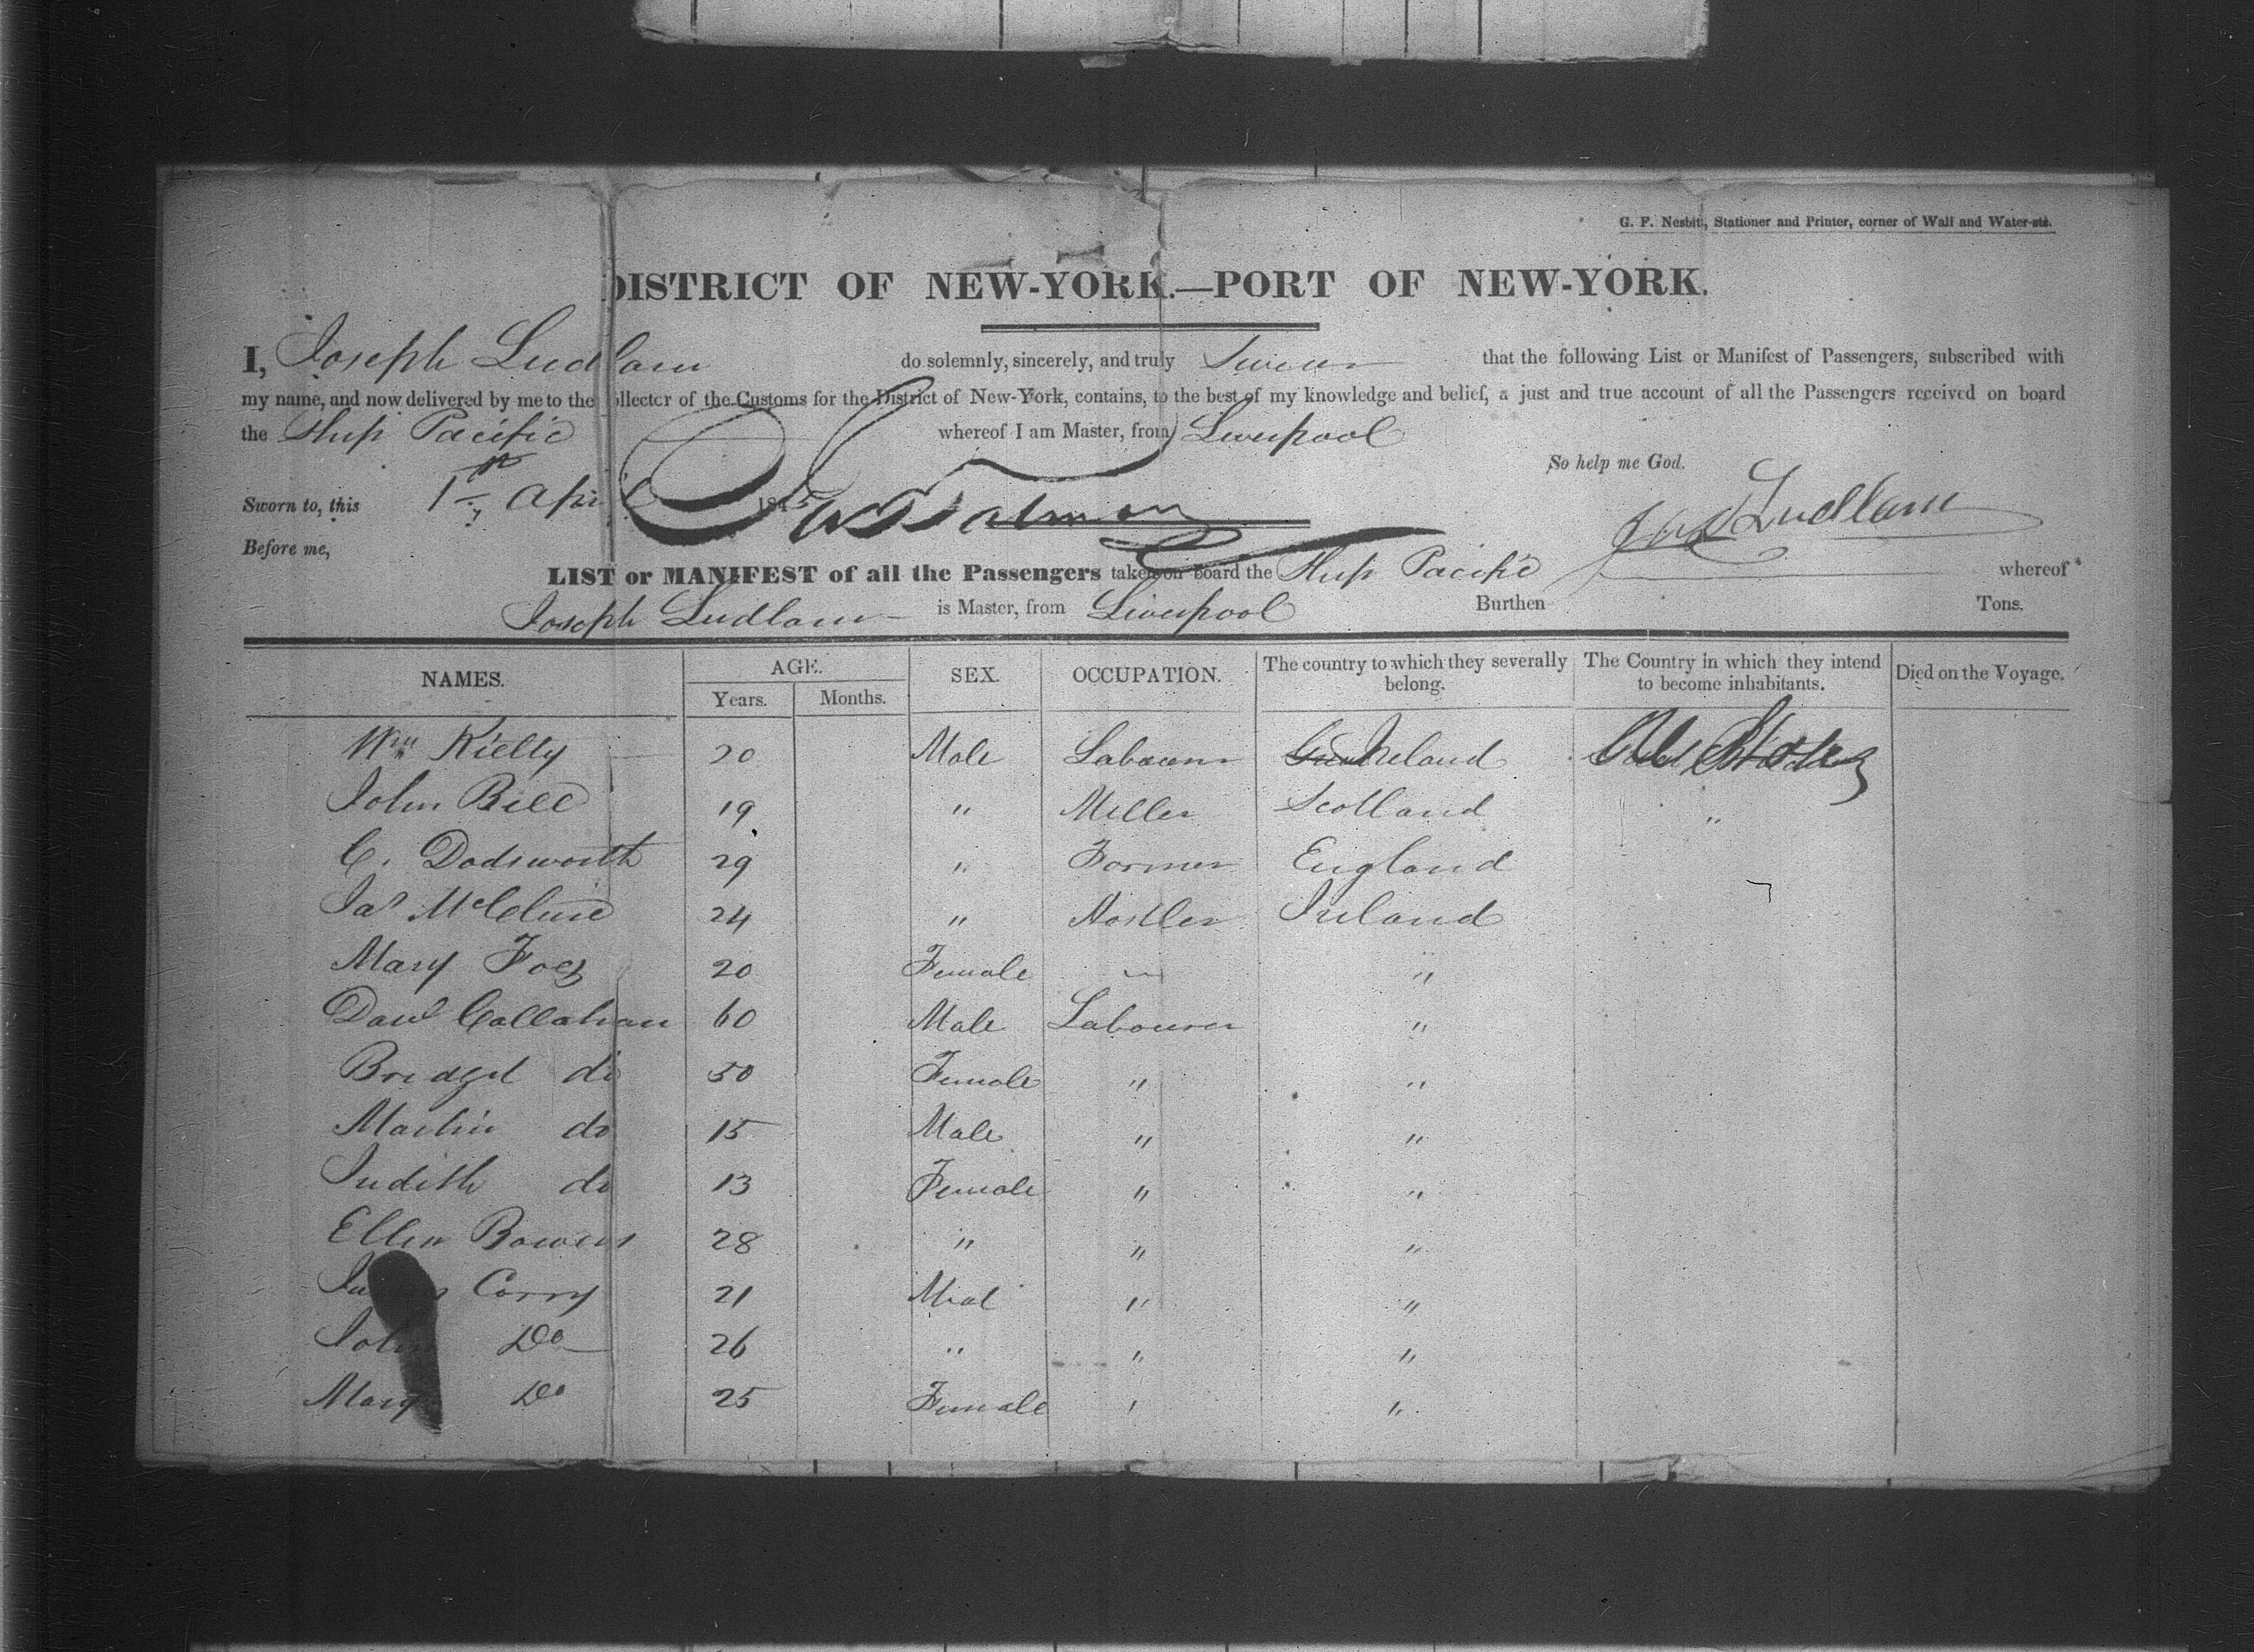 G. F. Nesbitt, Stationer and Printer, corner of Wall and Water-sts.
DISTRICT OF NEW-YORK.—PORT OF NEW-YORK.
I, Joseph Ludlam do solemnly, sincerely, and truly Swear that the following List or Manifest of Passengers, subscribed with
my name, and now delivered by me to the ollector of the Customs for the District of New-York, contains, to the best of my knowledge and belief, a just and true account of all the Passengers received on board
the Ship Pacific whereof I am Master, from Liverpool
So help me God.
Sworn to, this 1st April 1845
Jos Ludlam
Before me,
LIST or MANIFEST of all the Passengers taken on board the Ship Pacific whereof
Joseph Ludlam is Master, from Liverpool Burthen Tons.
NAMES. AGE. SEX. OCCUPATION. The country to which they severally belong. The Country in which they intend to become inhabitants. Died on the Voyage.
Years. Months.
Wm Kielly 20 Male Labourer Ireland States
John Bell 19 " Miller Scotland "
C. Dodsworth 29 " Farmer England
Jas McClure 24 " Hostler Ireland
Mary Foy 20 Female "
Danl Callahan 60 Male Labourer "
Bridget do 50 Female " "
Martin do 15 Male " "
Judith do 13 Female " "
Ellen Bowens 28 " " "
Corry 21 Mal " "
John Do 26 " " "
Mary Do 25 Female " "